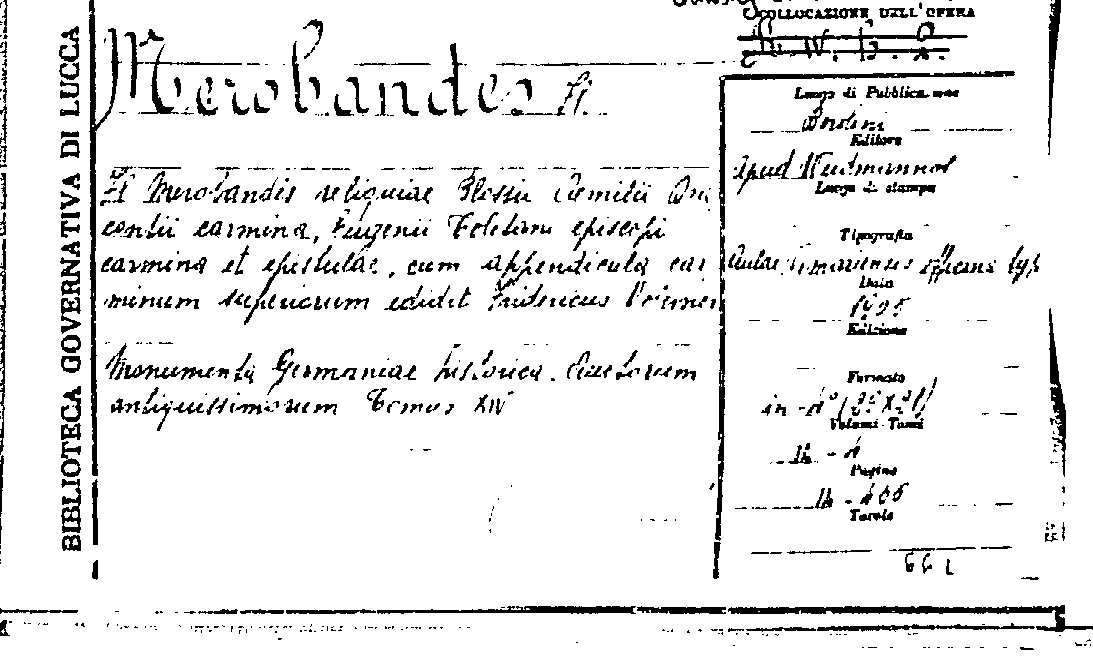 COLLOCAZIONE DELL'OPERA
BIBLIOTECA GOVERNATIVA DI LUCCA
Merobandes Fl.
Fl Merobandis reliquiae Blossii Aemilii Dra
contii carmina, Eugenii Toletani episcopi
carmina et epistulae, cum appendicula car
minum spuriorum edidit Fridericus Vollmer
Monumenta Germaniae historica. Auctorum
antiquissimorum Tomus XIV
Luogo di Pubblicazione
Berolini
Editore
apud Weidmannos
Luogo di stampa
Tipografia
Aulae
Data
1905
Edizione
Formato
in -4°
Volumi Tomi
Pagine
Tavole